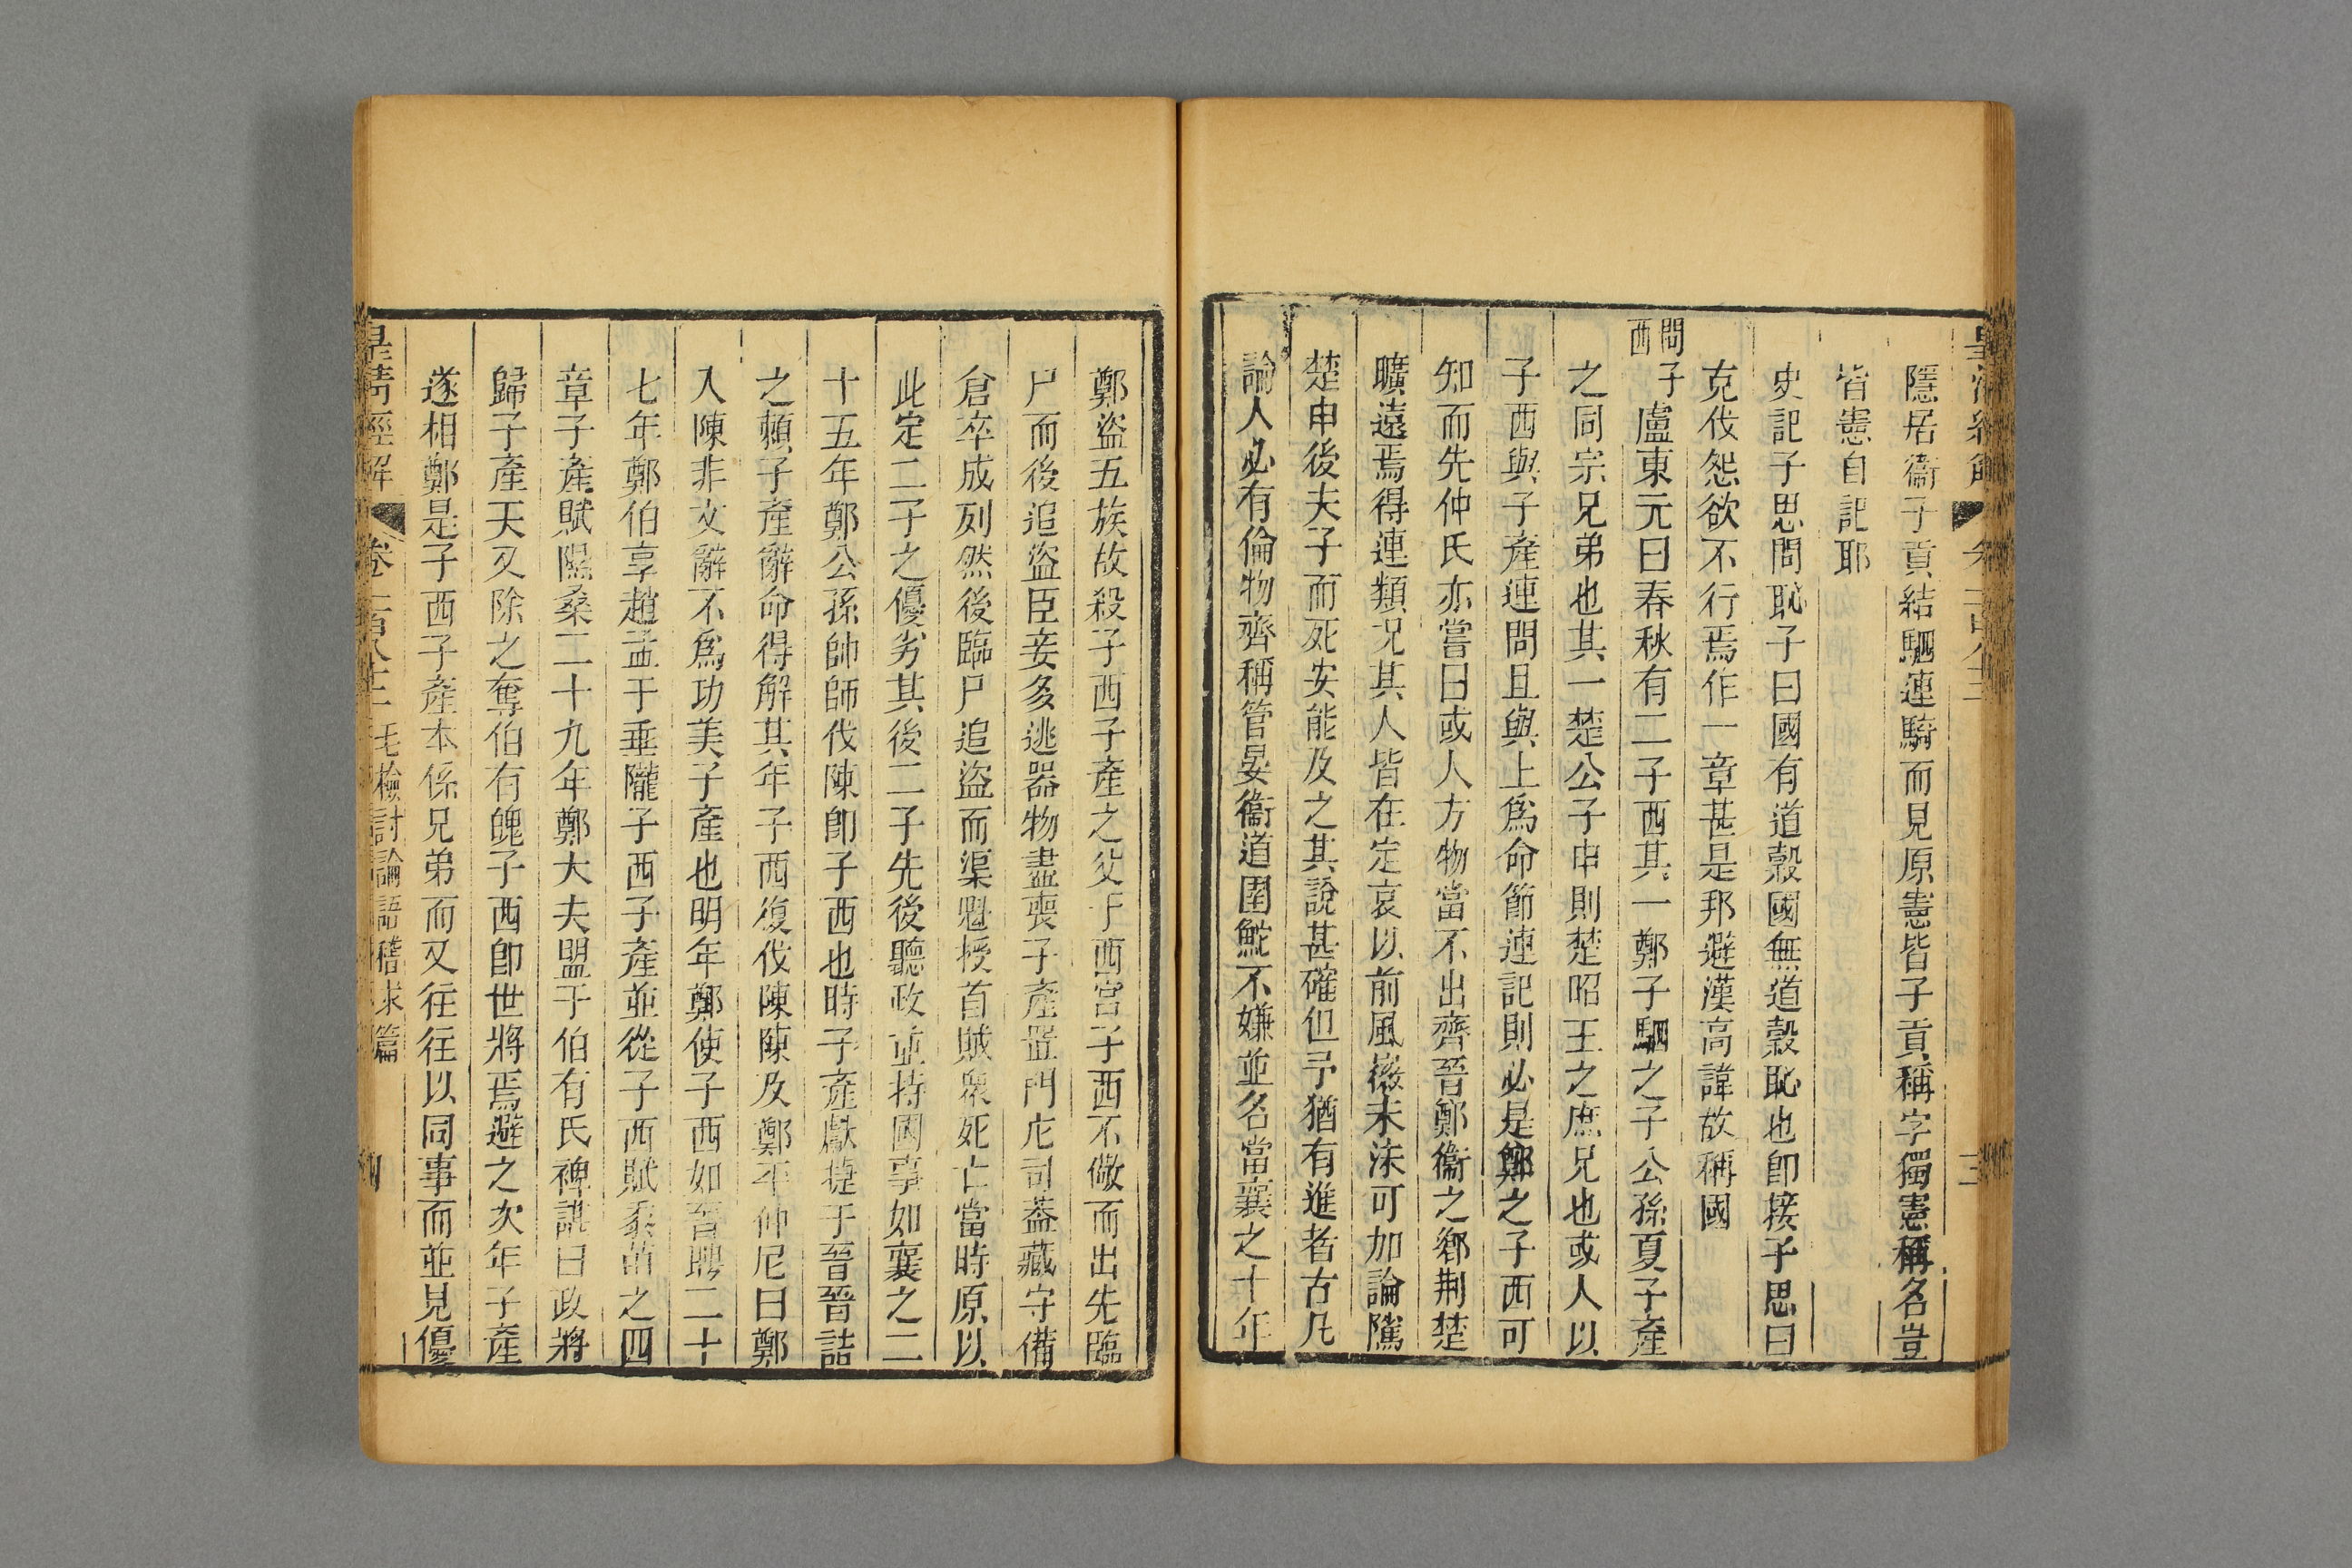 隱居衞子貢結駟連騎而見原憲皆子貢稱字獨憲稱名豈
皆憲自記耶
史記子思問恥子曰國有道穀國無道穀恥也卽接子思曰
克伐怨欲不行焉作一章甚是邦避漢高諱故稱國
問子西
盧東元曰春秋有二子西其一鄭子駟之子公孫夏子產
之同宗兄弟也其一楚公子申則楚昭王之庶兄也或人以
子西與子產連問且與上爲命節連記則必是鄭之子西可
知而先仲氏亦嘗曰或人方物當不出齊晉鄭衞之鄕荆楚
曠遠焉得連類况其人皆在定哀以前風徽未沫可加論隲
楚申後夫子而死安能及之其說甚確但予猶有進者古凡
論人必有倫物齊稱管晏衞道圉鮀不嫌並名當襄之十年
鄭盜五族故殺子西子產之父于西宮子西不儆而出先臨
尸而後追盜臣妾多逃器物盡喪子產置門庀司蓋藏守備
倉卒成列然後臨尸追盜而渠魁授首賊衆死亡當時原以
此定二子之優劣其後二子先後聽政並持國事如襄之二
十五年鄭公孫帥師伐陳卽子西也時子產獻捷于晉晉詰
之賴子產辭命得解其年子西復伐陳陳及鄭平仲尼曰鄭
入陳非文辭不爲功美子產也明年鄭使子西如晉聘二十
七年鄭伯享趙孟于垂隴子西子產並從子西賦黍苗之四
章子產賦隰桑二十九年鄭大夫盟于伯有氏裨諶曰政將
歸子產天又除之奪伯有魄子西卽世將焉避之次年子產
遂相鄭是子西子產本係兄弟而又往往以同事而並見優
皇淸經解 卷一百八十二 毛檢討論語稽求篇